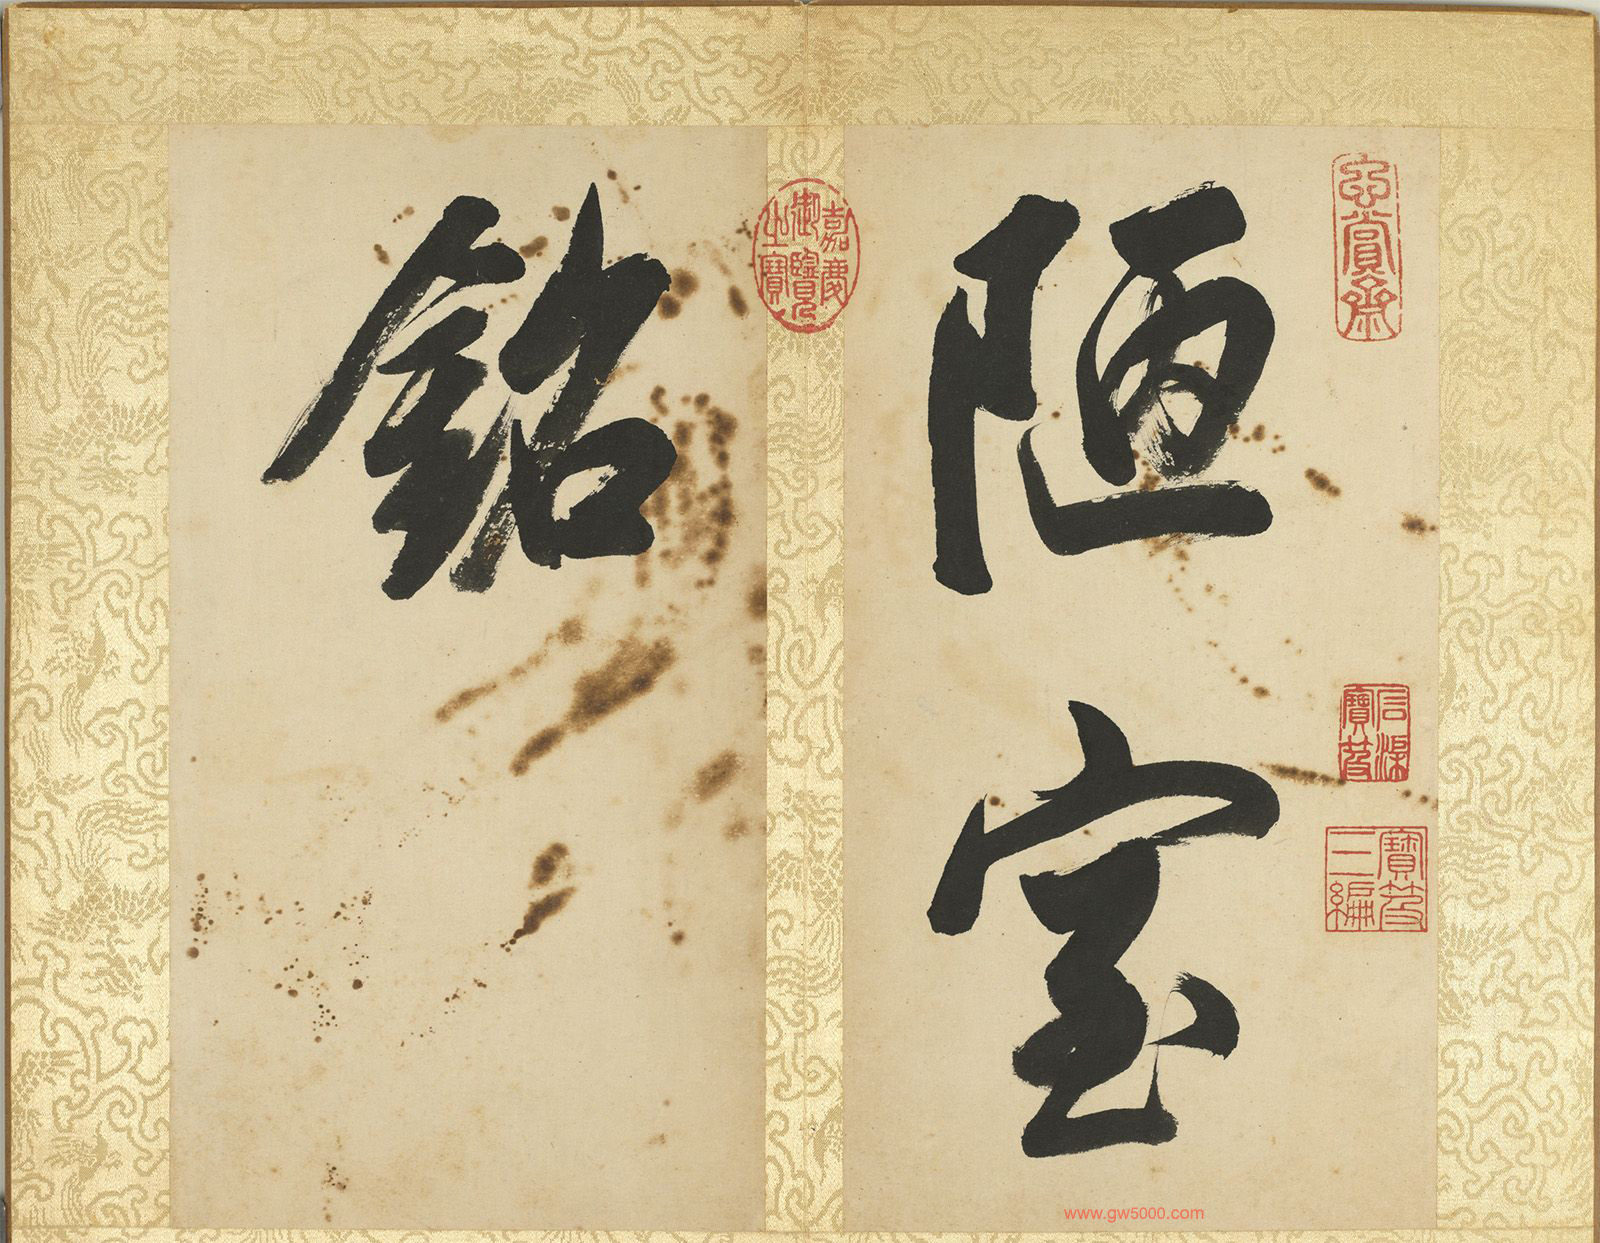 玄賞齋
陋室
石渠寶笈
寶笈三編
嘉慶御覽之寶
銘
www.gw5000.com